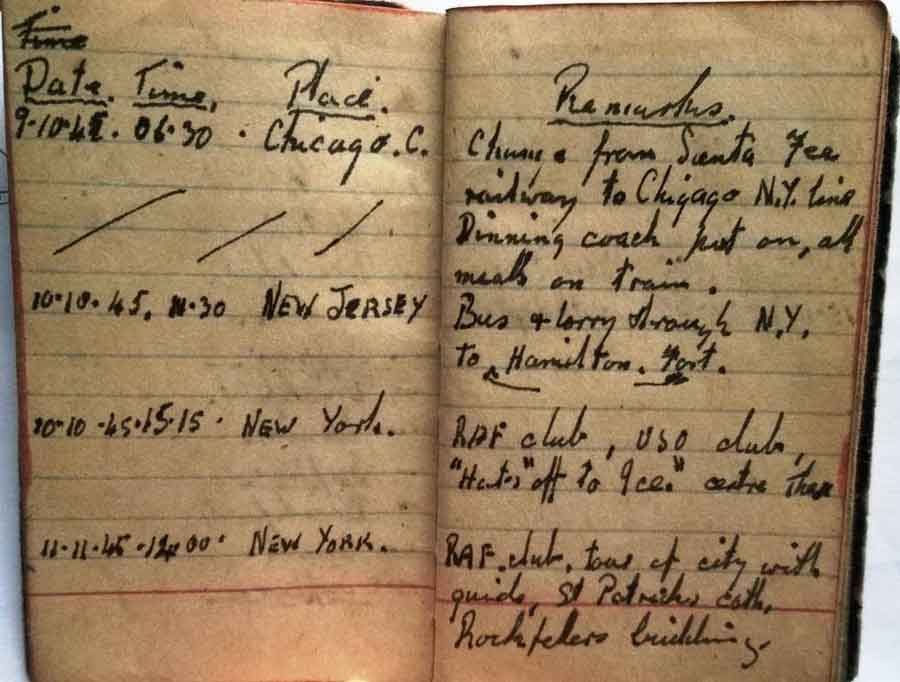 Time
Date. Time, Place. Remarks.
9-10-45. 06.30 . Chicago.C. Change from Santa Fee
railway to Chigago N.Y. line
Dinning coach put on, all
meals on train.
10.10.45, 11.30 NEW JERSEY Bus & lorry through N.Y.
to Hamilton. Fort.
10-10-45.15.15. NEW York. RAF club, USO club,
"Hats" off to Ice." centre
11-11-45.14.00. NEW YORK. RAF.club, tour of city with
guide, St Patricks cath,
Rockfelers building